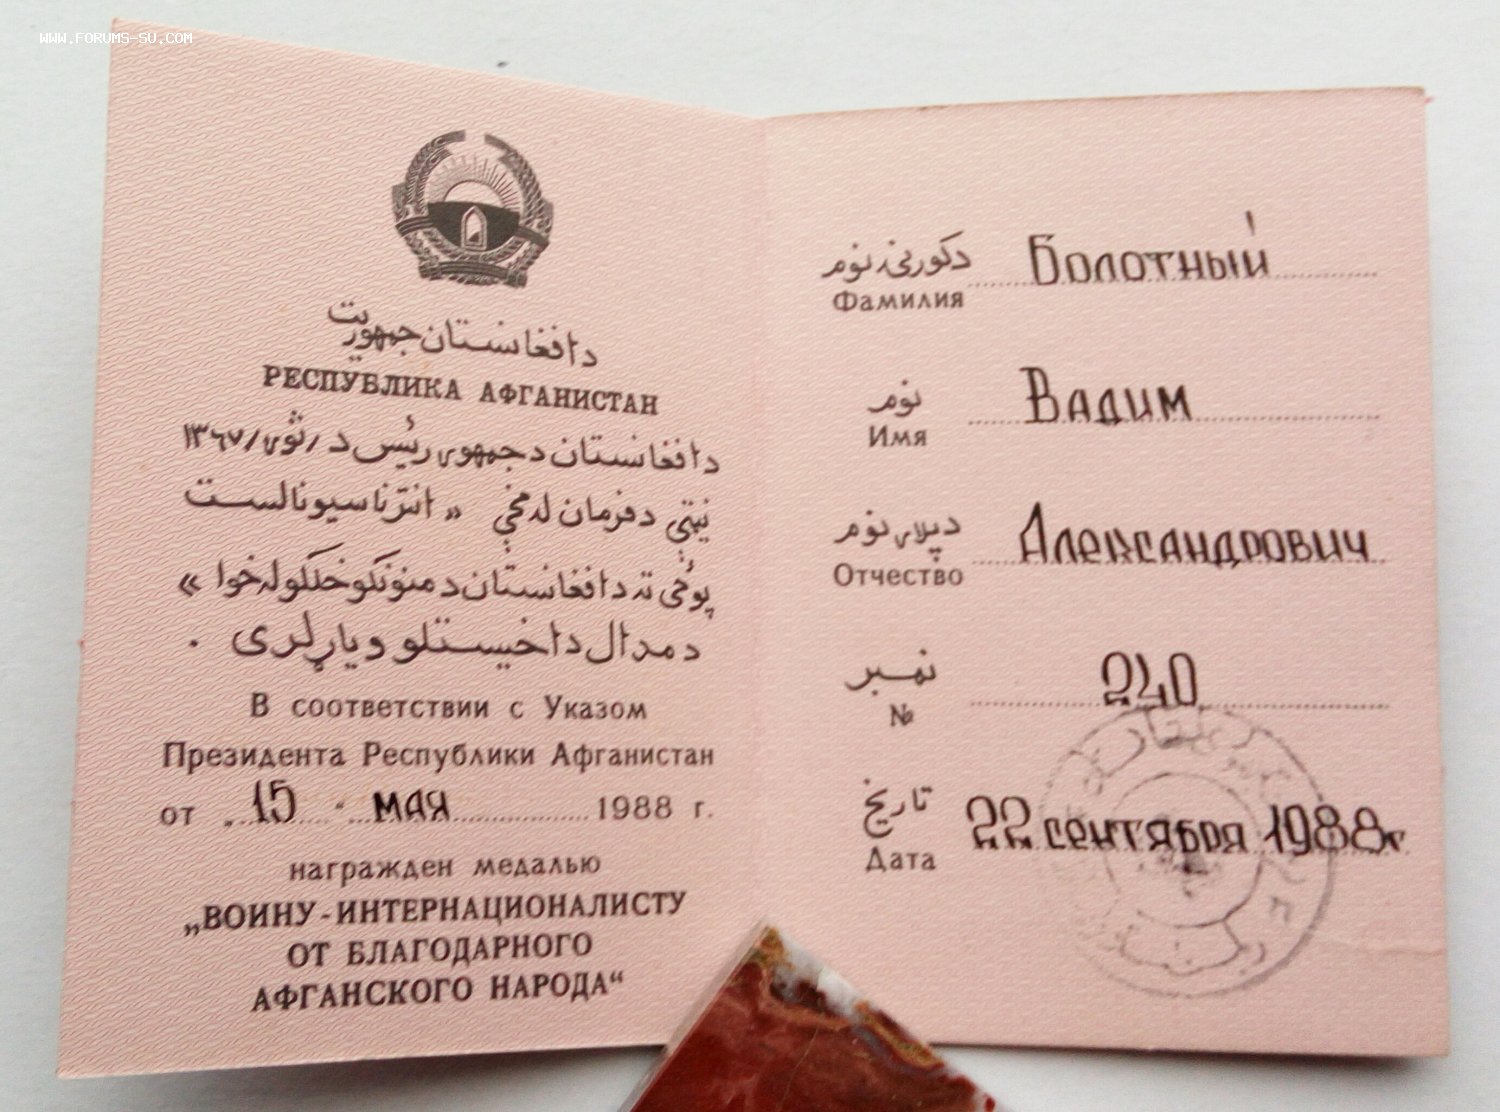 WWW.FORUMS-SU.COM
دافغانستان جمهوریت
РЕСПУБЛИКА АФГАНИСТАН
دافغانستان دجمهوری رئیس د /ثوری/ ۱۳۶۷
نیټې دفرمان له مخې « انترناسیونالست
پوځی ته دافغانستان دمنونکو خلکو له خوا »
دمدال داخیستلو ویاړلری .
В соответствии с Указом
Президента Республики Афганистан
от 15 мая 1988 г.
награжден медалью
„ВОИНУ-ИНТЕРНАЦИОНАЛИСТУ
ОТ БЛАГОДАРНОГО
АФГАНСКОГО НАРОДА“
دکورنۍ نوم Болотный
Фамилия
نوم Вадим
Имя
دپلار نوم Александрович
Отчество
نمبر 240
№
تاریخ 22 сентября 1988г
Дата